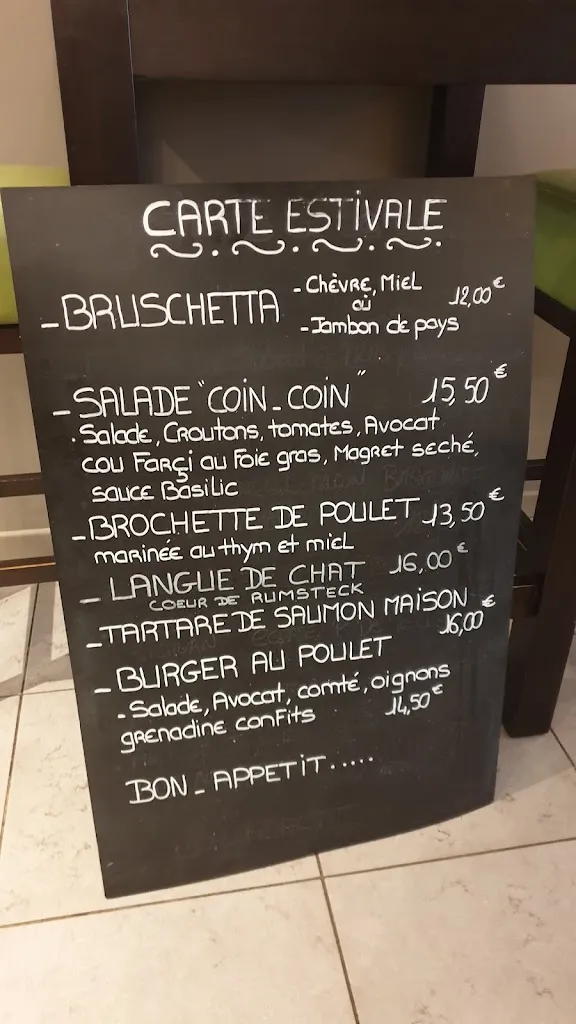 CARTE ESTIVALE
- BRUSCHETTA - Chèvre, Miel 12,00€
où
- Jambon de pays
- SALADE "COIN_COIN" 15,50€
. Salade, Croutons, tomates, Avocat
cou Farçi au Foie gras, Magret seché,
sauce Basilic
- BROCHETTE DE POULET 13,50€
marinée au thym et miel
- LANGUE DE CHAT 16,00€
COEUR DE RUMSTECK
- TARTARE DE SAUMON MAISON 16,00€
- BURGER AU POULET
- Salade, Avocat, comté, oignons
grenadine confits 14,50€
BON_APPETIT.....